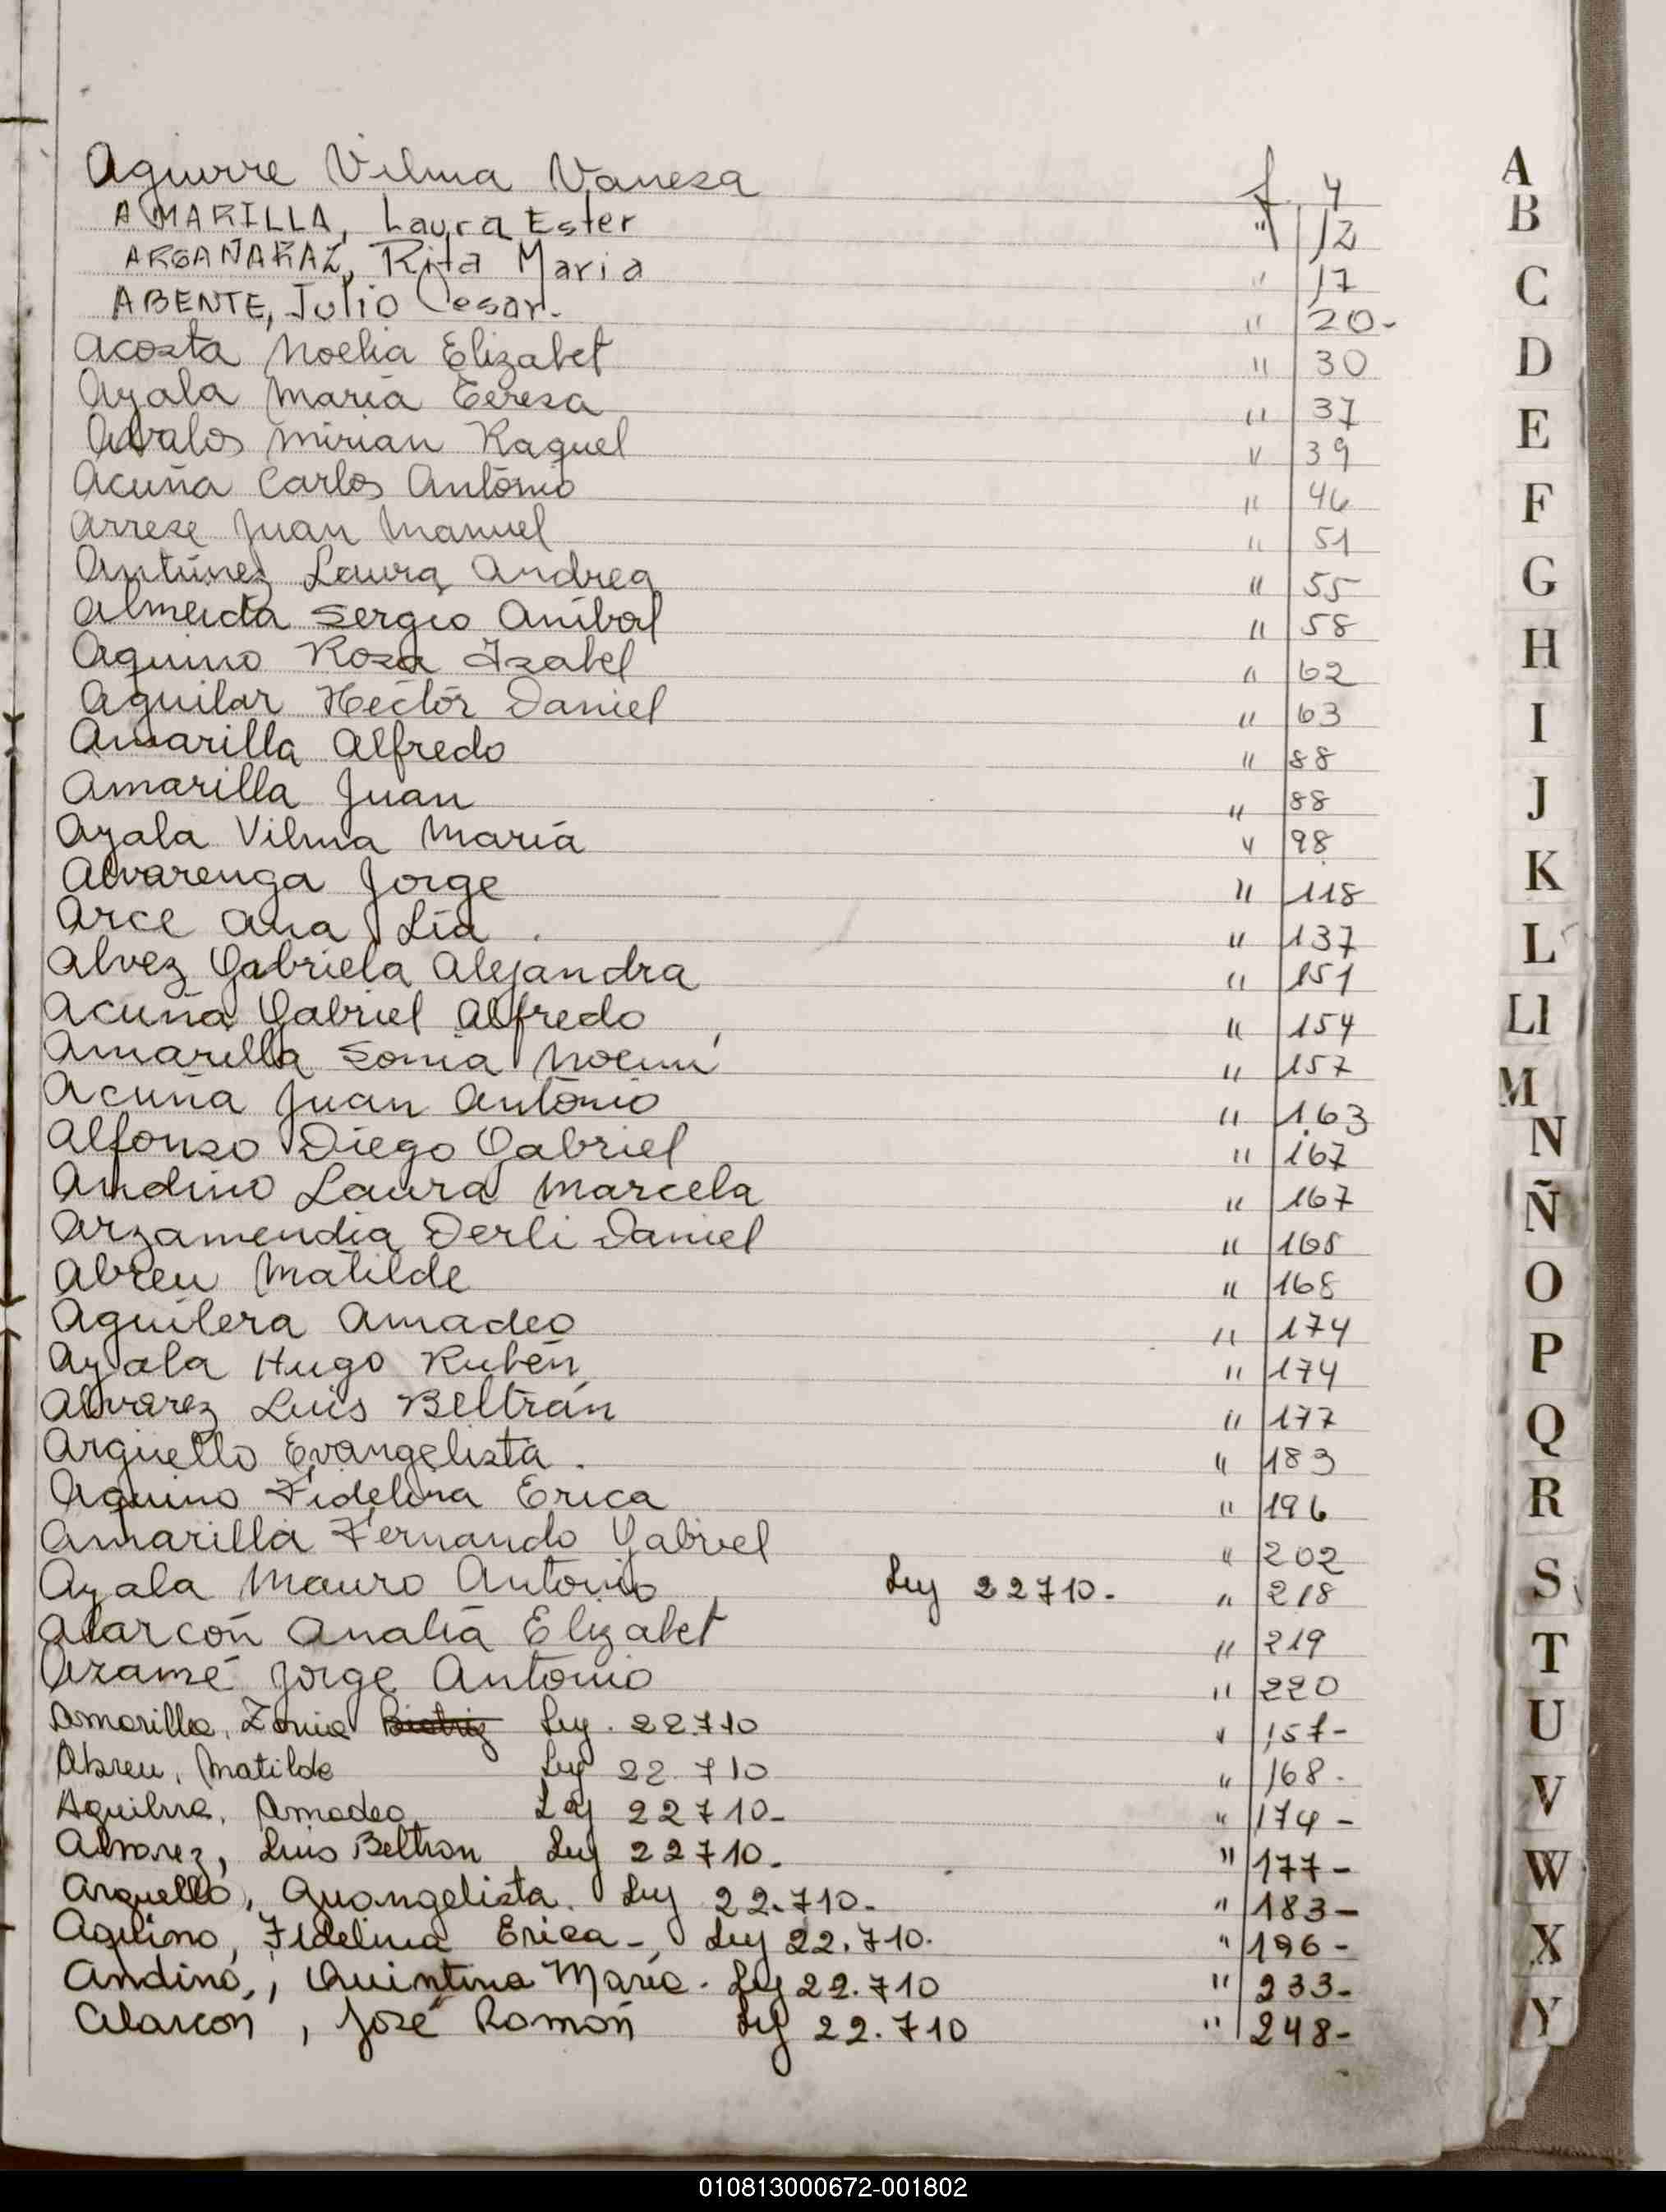 Aguirre Vilma Vanesa f. 4
AMARILLA, Laura Ester " 12
ARGAÑARAZ, Rita Maria " 17
ABENTE, Julio Cesar. " 20-
Acosta Noelia Elizabet " 30
Ayala María Teresa " 37
Avalos Mirian Raquel " 39
Acuña Carlos Antonio " 46
Arrese Juan Manuel " 51
Antúnez Laura Andrea " 55
Almeida Sergio Aníbal " 58
Aquino Rosa Isabel " 62
Aguilar Hector Daniel " 63
Amarilla Alfredo " 88
Amarilla Juan " 88
Ayala Vilma María " 98
Alvarenga Jorge " 118
Arce Ana Lía . " 137
Alvez Gabriela Alejandra " 151
Acuña Gabriel Alfredo " 154
Amarilla Sonia Noemí " 157
Acuña Juan Antonio " 163
Alfonso Diego Gabriel " 167
Andino Laura Marcela " 167
Arzamendia Derli Daniel " 168
Abreu Matilde " 168
Aguilera Amadeo " 174
Ayala Hugo Rubén " 174
Alvarez Luis Beltrán " 177
Argüello Evangelista . " 183
Aquino Fidelina Erica " 196
Amarilla Fernando Gabriel " 202
Ayala Mauro Antonio Ley 22710. " 218
Alarcón Analía Elizabet " 219
Aramé Jorge Antonio " 220
Amarilla, Zonia Ley. 22.710 " 157-
Abreu, Matilde Ley 22.710 " 168.
Aguilera, Amadeo Ley 22710- " 174-
Alvarez, Luis Beltran Ley 22710. " 177-
Arguello, Ley 22.710. " 183-
Aquino, Fidelina Erica - Ley 22.710. " 196-
Andino, Quintina María. Ley 22.710 " 233-
Alarcon, José Ramón Ley 22.710 " 248-
A
B
C
D
E
F
G
H
I
J
K
L
Ll
M
N
Ñ
O
P
Q
R
S
T
U
V
W
X
Y
010813000672-001802